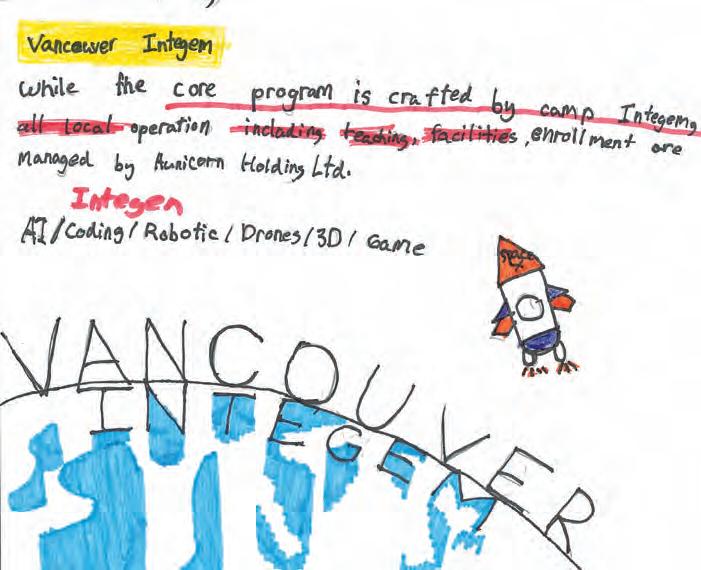 Vancouver Integem
While the core program is crafted by camp Integem,
all local operation including teaching, facilities, enrollment are
managed by Aunicorn Holding Ltd.
Integen
AI/Coding/Robotic/Drones/3D/Game
Space
X
VANCOUVER
INTEGEM